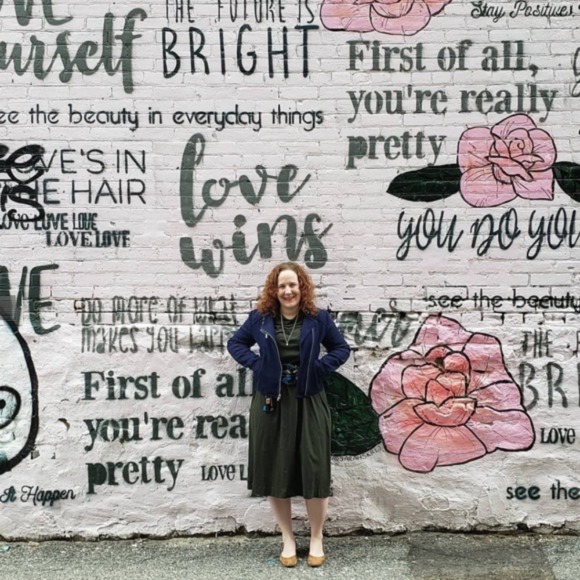 VE
Yourself
THE FUTURE IS
BRIGHT
Stay Positive
First of all,
you're really
pretty
see the beauty in everyday things
LOVE'S IN
THE HAIR
LOVE LOVE LOVE
LOVE LOVE
love
wins
YOU DO YOU
VE
DO MORE OF WHAT
MAKES YOU HAPPY
see the beauty
First of all
you're rea
pretty
LOVE L
THE
BRI
LOVE
It Happen
see the